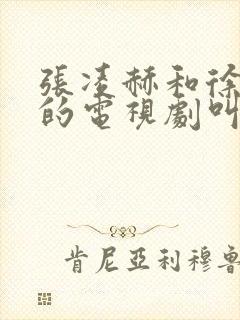 張凌赫和徐
的電視劇叫
肯尼亞利穆魯